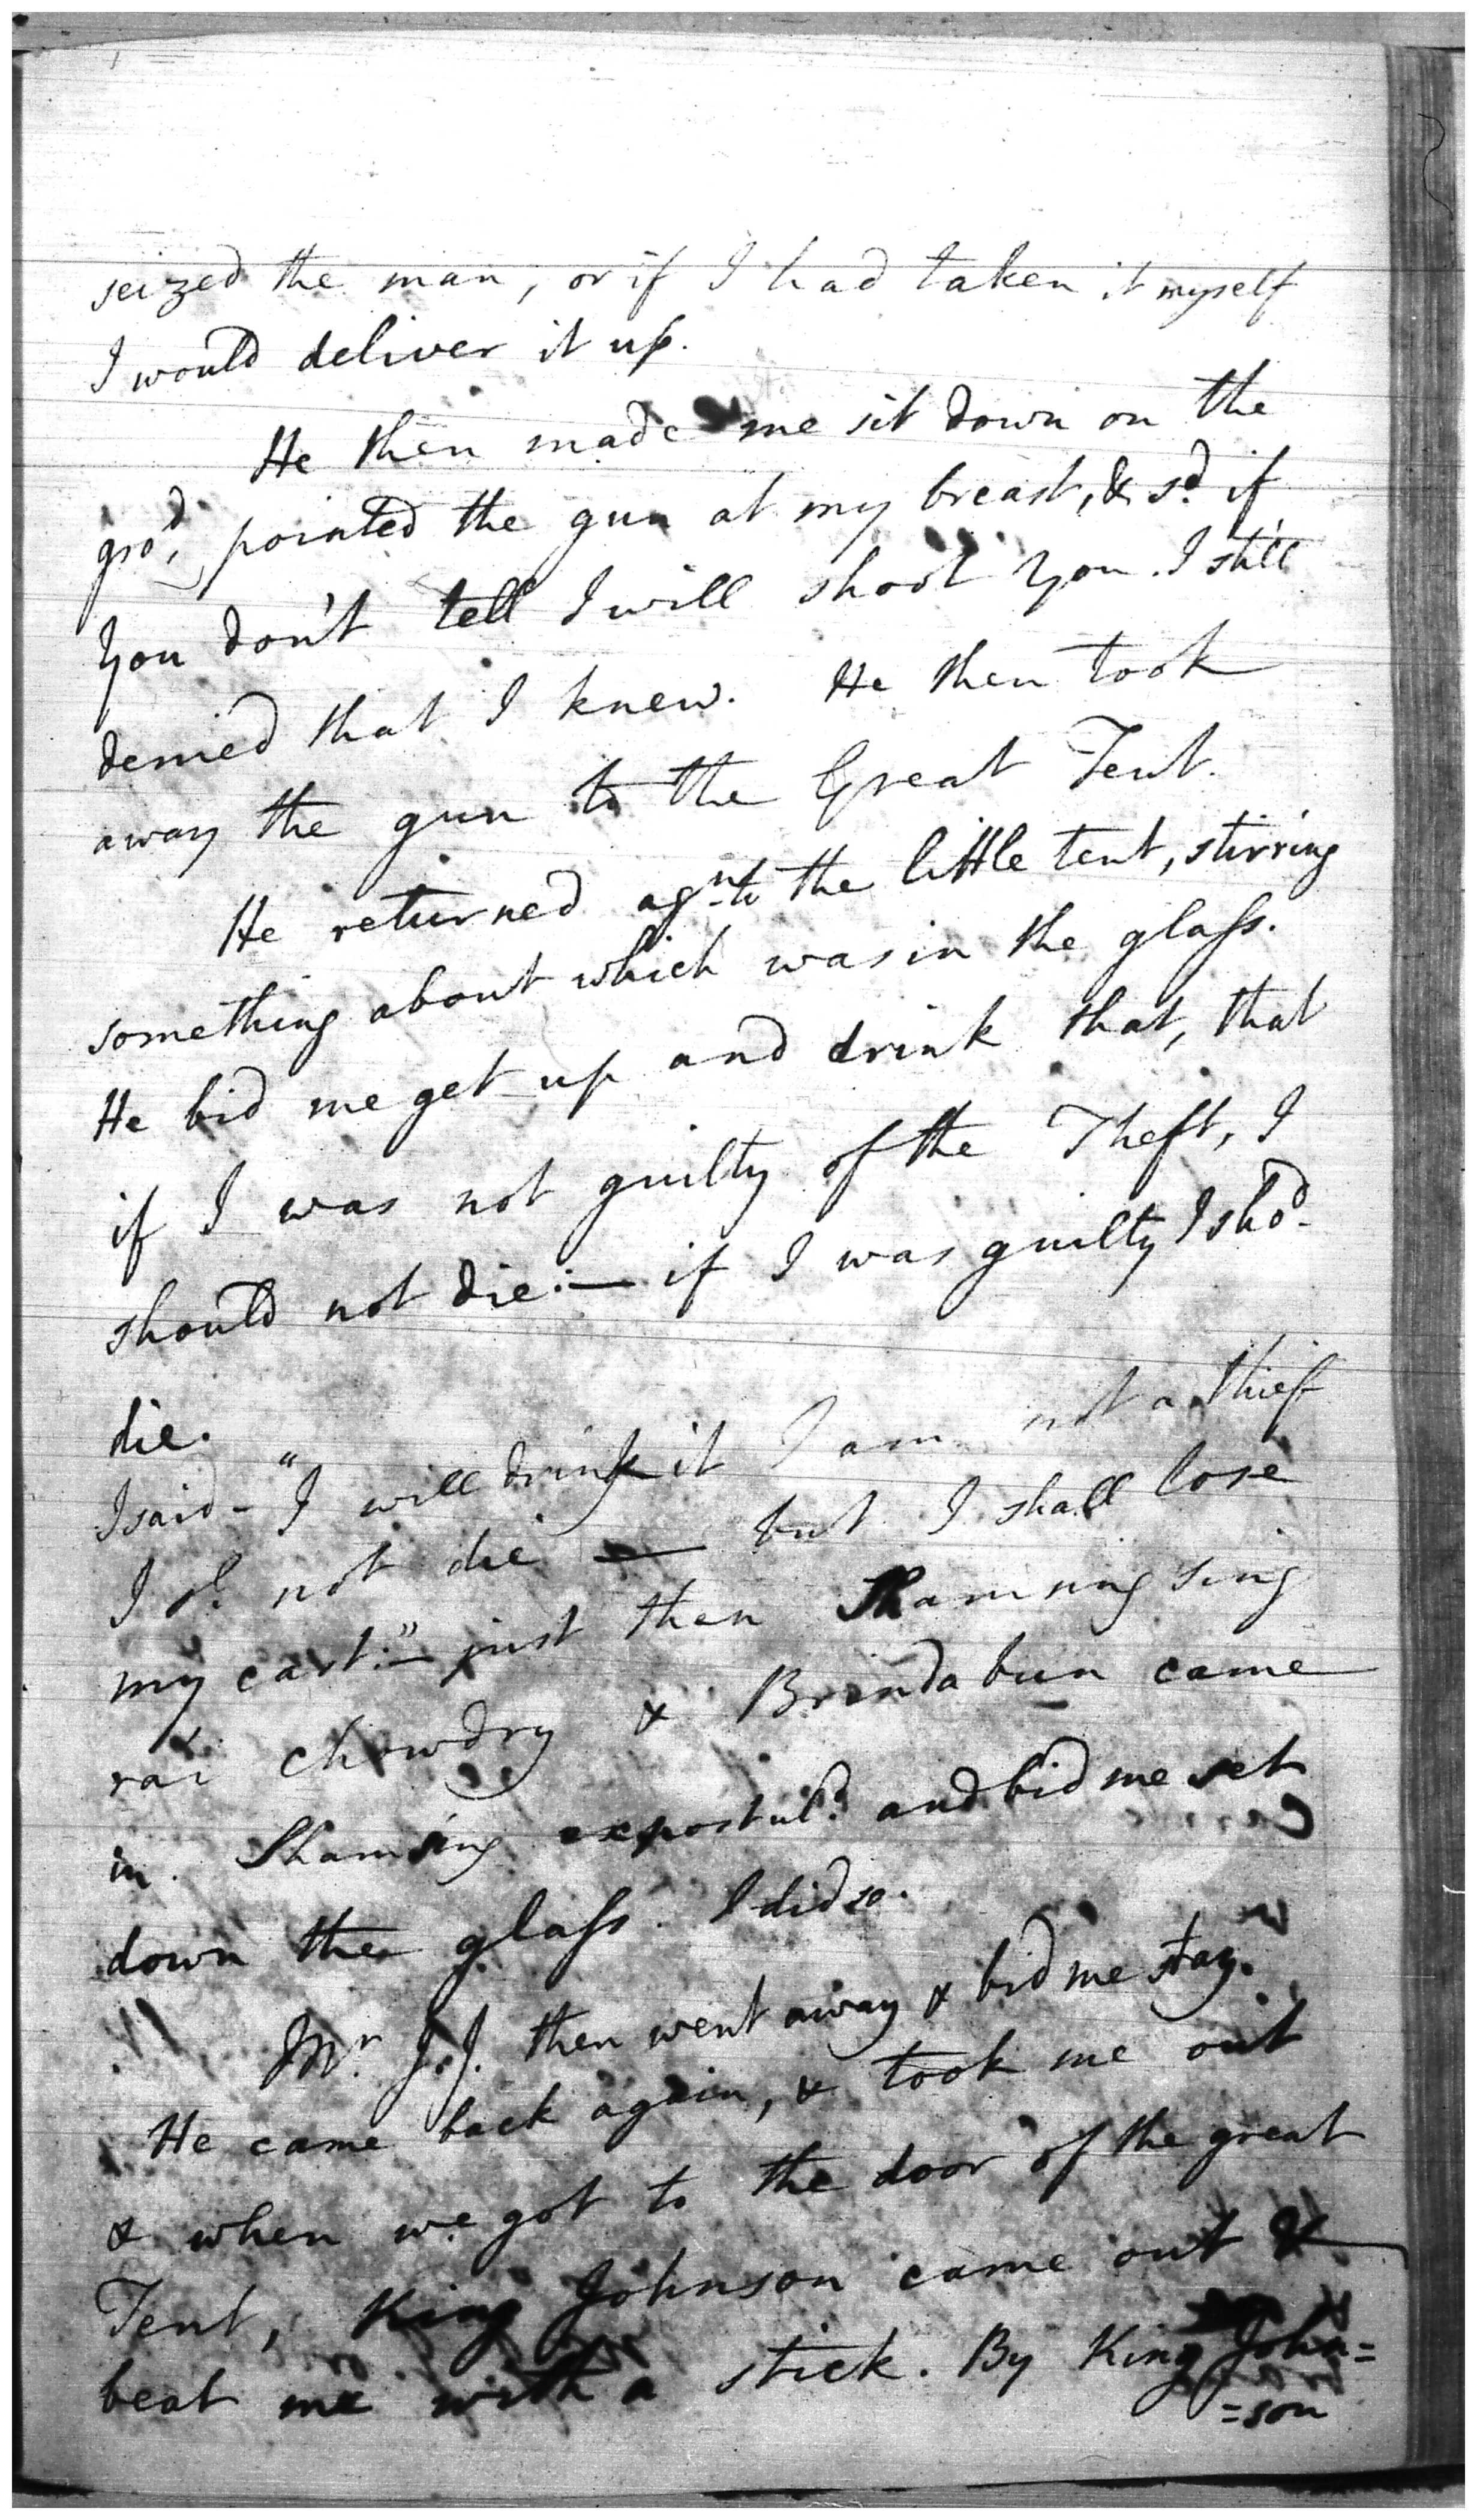 seized the man, or if I had taken it myself
I would deliver it up.
He then made me sit down on the
gro^d, pointed the gun at my breast, & s^d if
you don't tell I will shoot you. I still
denied that I knew. He then took
away the gun to the Great Tent.
He returned ag^n to the little tent, stirring
something about which was in the glass.
He bid me get up and drink that, that
if I was not guilty of the Theft, I
should not die:— if I was guilty I sho^d
die.
I said – "I will drink it I am not a thief
I sh^l not die — but I shall lose
my cast:"— just then Sham sing
rai Chowdry & Brindabun came
in. Shamsing expostul^d and bid me set
down the glass. I did so.
M^r J.J. then went away & bid me stay.
He came back again, & took me out
& when we got to the door of the great
Tent, King Johnson came out &
beat me with a stick. By King John=
=son